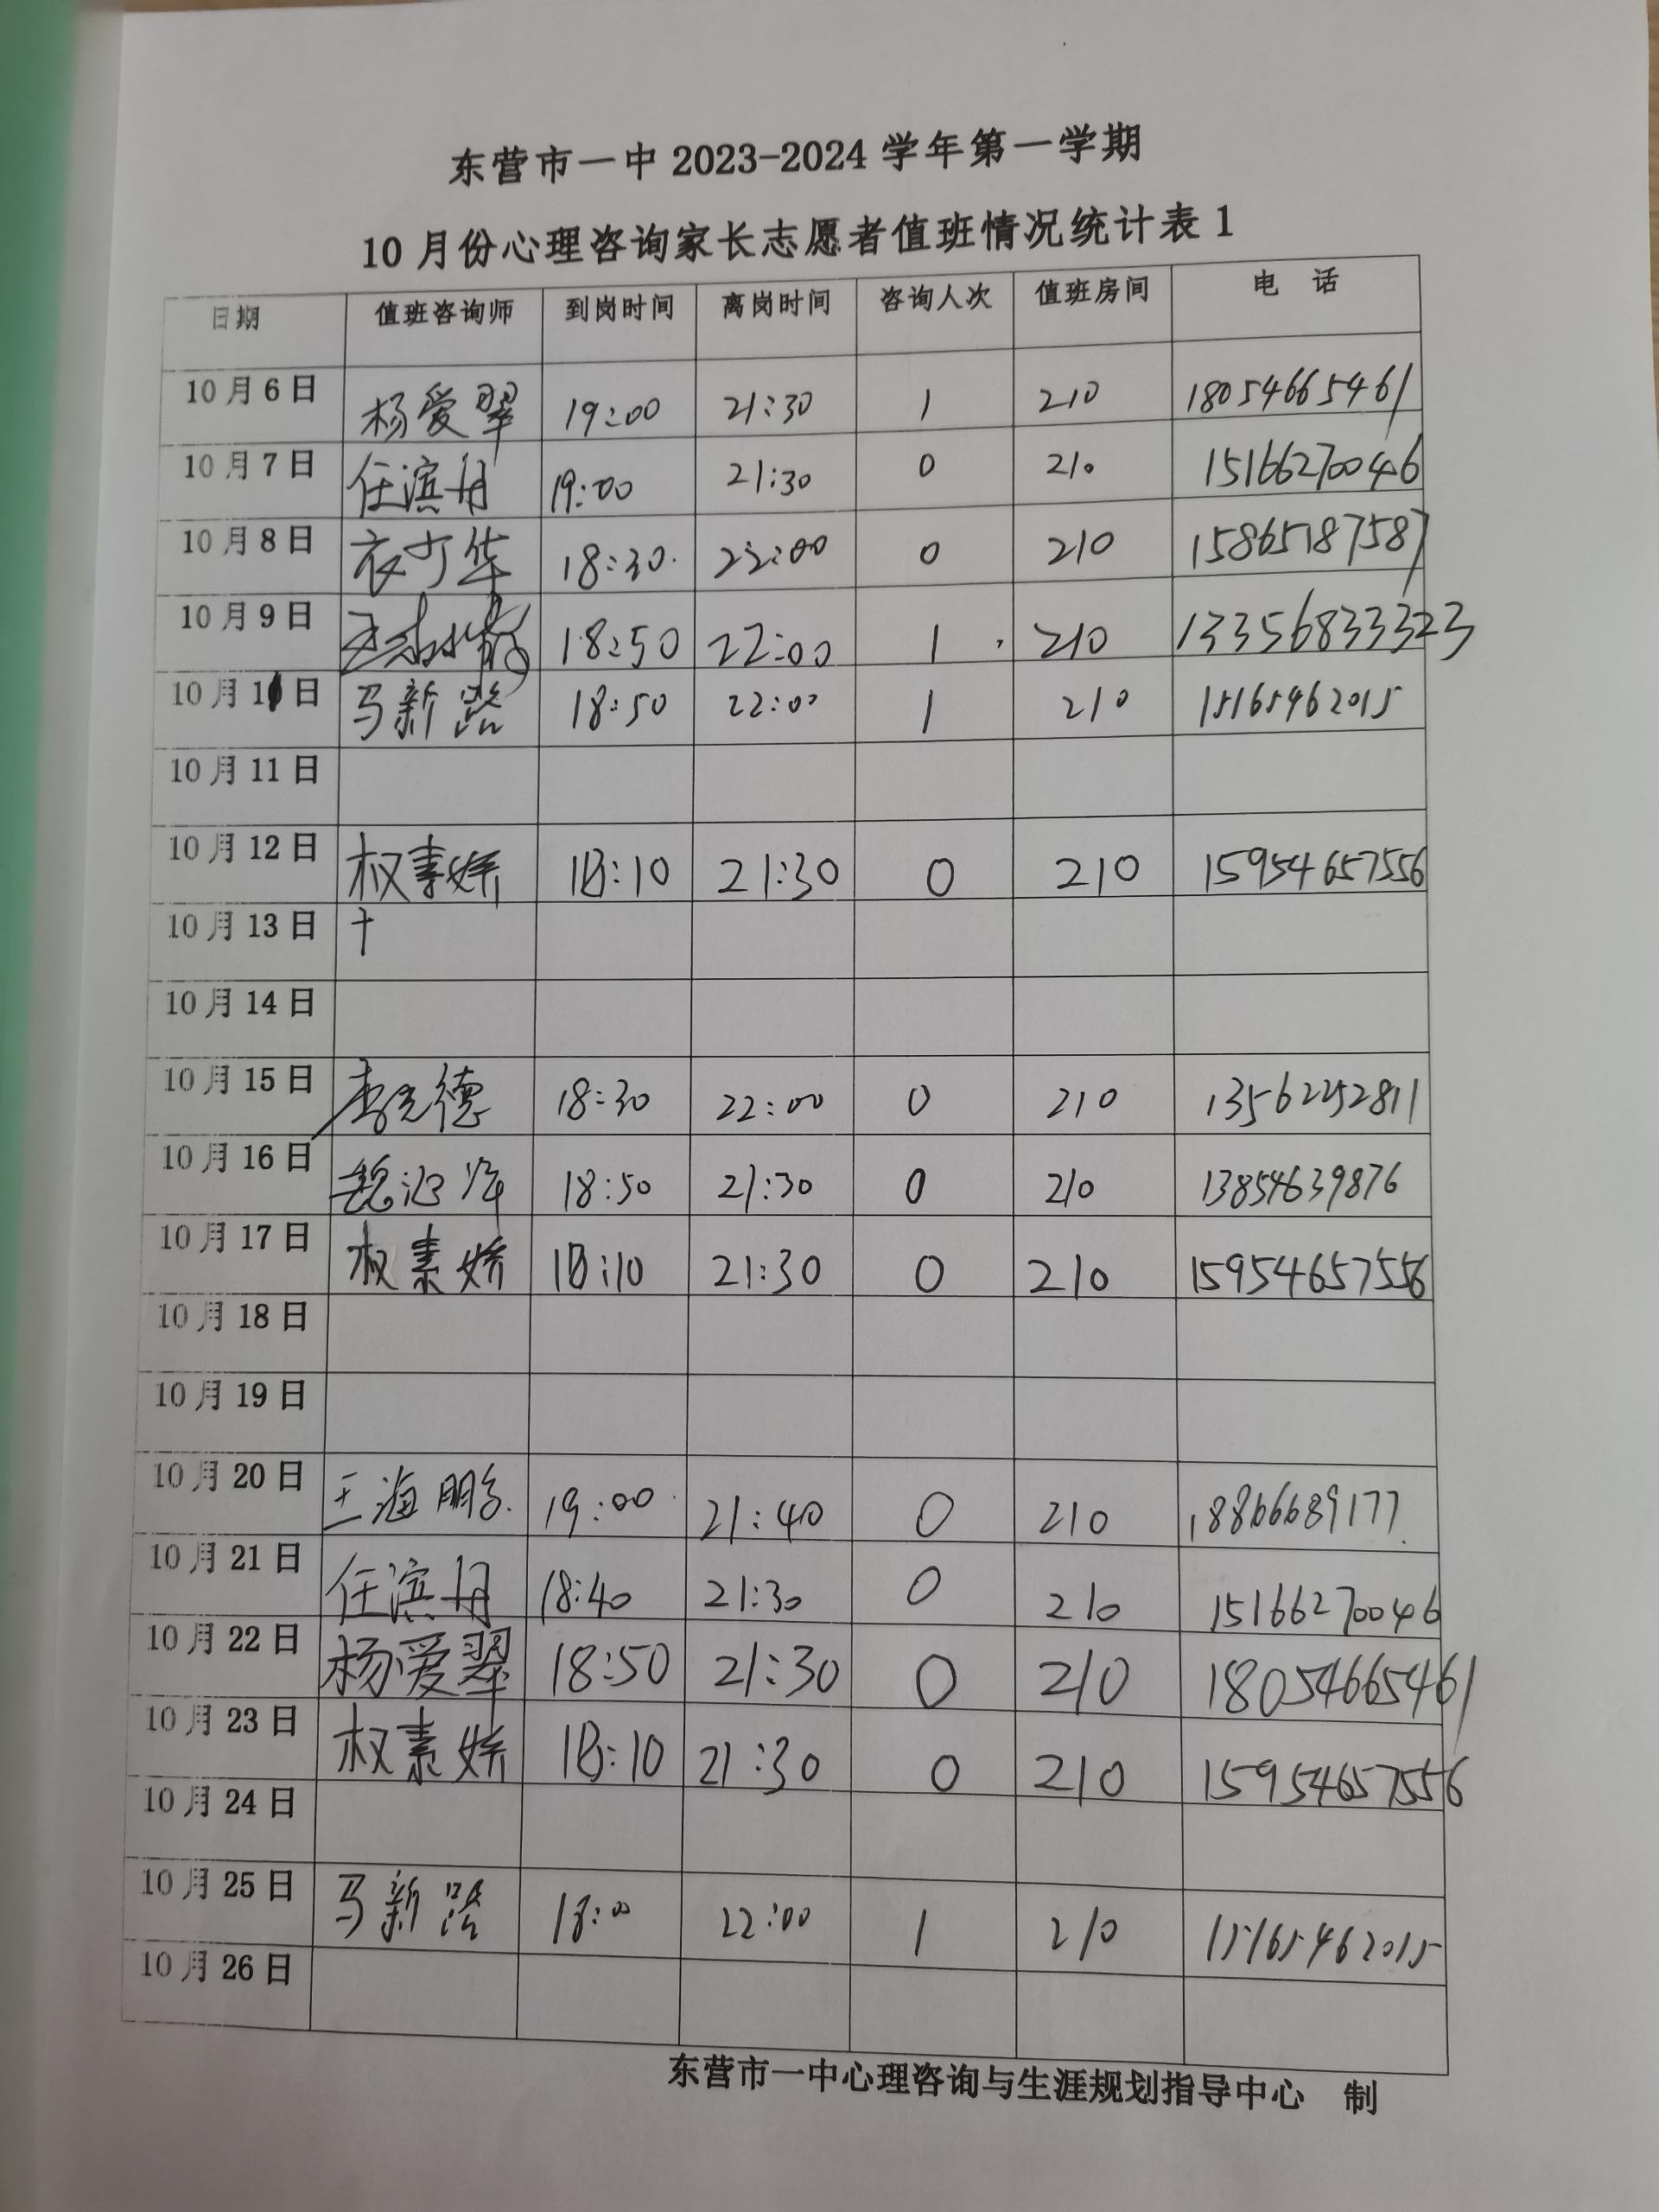 东营市一中 2023-2024 学年第一学期
10 月份心理咨询家长志愿者值班情况统计表 1
日期 值班咨询师 到岗时间 离岗时间 咨询人次 值班房间 电 话
10 月 6 日 杨爱翠 19:00 21:30 1 210 18054665461
10 月 7 日 任滨丹 19:00 21:30 0 210 15166270046
10 月 8 日 18:30 22:00 0 210 15865187587
10 月 9 日 18:50 22:00 1 210 13356833323
10 月 10 日 马新路 18:50 22:00 1 210 15165462015
10 月 11 日
10 月 12 日 权素娇 18:10 21:30 0 210 15954657556
10 月 13 日
10 月 14 日
10 月 15 日 18:30 22:00 0 210 13562252811
10 月 16 日 18:50 21:30 0 210 13854639876
10 月 17 日 权素娇 18:10 21:30 0 210 15954657556
10 月 18 日
10 月 19 日
10 月 20 日 王海鹏 19:00 21:40 0 210 18866689177
10 月 21 日 任滨丹 18:40 21:30 0 210 15166270046
10 月 22 日 杨爱翠 18:50 21:30 0 210 18054665461
10 月 23 日 权素娇 18:10 21:30 0 210 15954657556
10 月 24 日
10 月 25 日 马新路 18:00 22:00 1 210 15165462015
10 月 26 日
东营市一中心理咨询与生涯规划指导中心 制